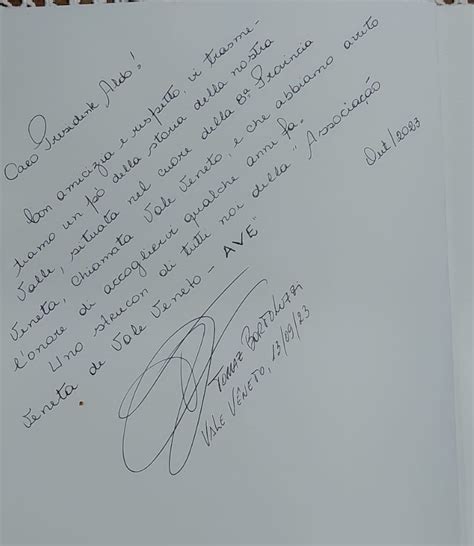 Caro Presidente Aldo!
Con amicizia e rispetto, vi trasme-
tiamo un pó della storia della nostra
Valle, situata nel cuore della 8ª Provincia
Veneta, chiamata Vale Veneto, e che abbiamo avuto
l'onore di accogliervi qualche anni fa.
Uno strucon di tutti noi della "Associação
Veneta de Vale Veneto - AVE"
Out/2023
TOMAZ BORTOLUZZI
VALE VÊNETO, 13/09/23